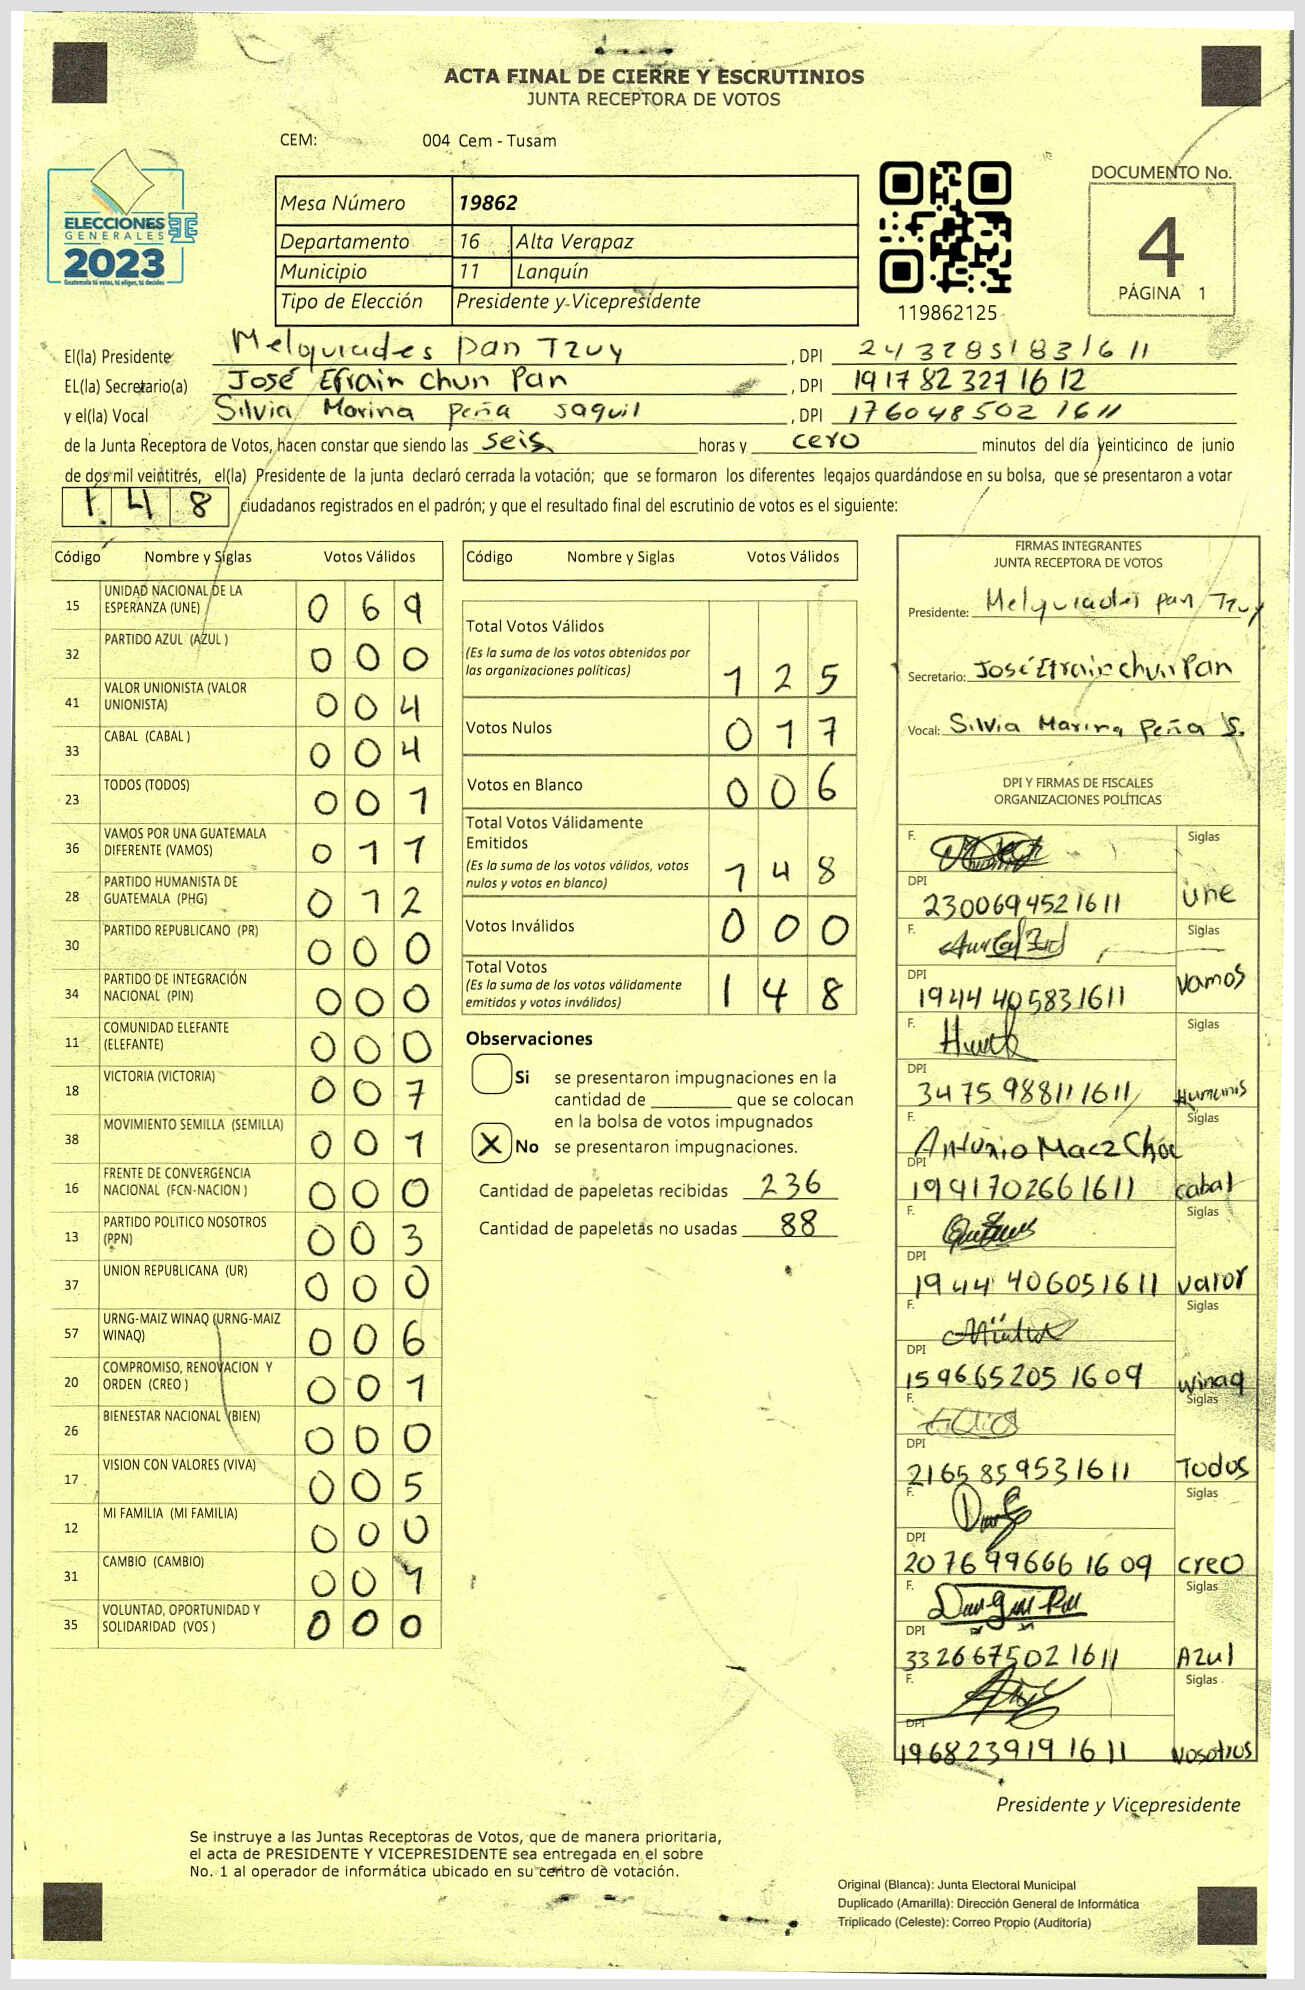 ACTA FINAL DE CIERRE Y ESCRUTINIOS
JUNTA RECEPTORA DE VOTOS
CEM: 004 Cem - Tusam
ELECCIONES
GENERALES
2023
Guatemala tú votas, tú eliges, tú decides
Mesa Número 19862
Departamento 16 Alta Verapaz
Municipio 11 Lanquín
Tipo de Elección Presidente y Vicepresidente
119862125
DOCUMENTO No.
4
PÁGINA 1
El(la) Presidente Melquiades Pan Tzuy , DPI 2432851831611
EL(la) Secretario(a) José Efrain Chun Pan , DPI 1917823271612
y el(la) Vocal Silvia Marina Peña Saquil , DPI 1760485021611
de la Junta Receptora de Votos, hacen constar que siendo las seis horas y cero minutos del día veinticinco de junio
de dos mil veintitrés, el(la) Presidente de la junta declaró cerrada la votación; que se formaron los diferentes legajos quardándose en su bolsa, que se presentaron a votar
1 4 8 ciudadanos registrados en el padrón; y que el resultado final del escrutinio de votos es el siguiente:
Código Nombre y Siglas Votos Válidos
15 UNIDAD NACIONAL DE LA ESPERANZA (UNE) 0 6 9
32 PARTIDO AZUL (AZUL ) 0 0 0
41 VALOR UNIONISTA (VALOR UNIONISTA) 0 0 4
33 CABAL (CABAL ) 0 0 4
23 TODOS (TODOS) 0 0 1
36 VAMOS POR UNA GUATEMALA DIFERENTE (VAMOS) 0 1 1
28 PARTIDO HUMANISTA DE GUATEMALA (PHG) 0 1 2
30 PARTIDO REPUBLICANO (PR) 0 0 0
34 PARTIDO DE INTEGRACIÓN NACIONAL (PIN) 0 0 0
11 COMUNIDAD ELEFANTE (ELEFANTE) 0 0 0
18 VICTORIA (VICTORIA) 0 0 7
38 MOVIMIENTO SEMILLA (SEMILLA) 0 0 1
16 FRENTE DE CONVERGENCIA NACIONAL (FCN-NACION ) 0 0 0
13 PARTIDO POLITICO NOSOTROS (PPN) 0 0 3
37 UNION REPUBLICANA (UR) 0 0 0
57 URNG-MAIZ WINAQ (URNG-MAIZ WINAQ) 0 0 6
20 COMPROMISO, RENOVACION Y ORDEN (CREO ) 0 0 1
26 BIENESTAR NACIONAL (BIEN) 0 0 0
17 VISION CON VALORES (VIVA) 0 0 5
12 MI FAMILIA (MI FAMILIA) 0 0 0
31 CAMBIO (CAMBIO) 0 0 1
35 VOLUNTAD, OPORTUNIDAD Y SOLIDARIDAD (VOS ) 0 0 0
Código Nombre y Siglas Votos Válidos
Total Votos Válidos
(Es la suma de los votos obtenidos por
las organizaciones políticas) 1 2 5
Votos Nulos 0 1 7
Votos en Blanco 0 0 6
Total Votos Válidamente
Emitidos
(Es la suma de los votos válidos, votos
nulos y votos en blanco) 1 4 8
Votos Inválidos 0 0 0
Total Votos
(Es la suma de los votos válidamente
emitidos y votos inválidos) 1 4 8
Observaciones
Si se presentaron impugnaciones en la
cantidad de ________ que se colocan
en la bolsa de votos impugnados
X No se presentaron impugnaciones.
Cantidad de papeletas recibidas 236
Cantidad de papeletas no usadas 88
FIRMAS INTEGRANTES
JUNTA RECEPTORA DE VOTOS
Presidente: Melquiades Pan Tzuy
Secretario: José Efrain Chun Pan
Vocal: Silvia Marina Peña S.
DPI Y FIRMAS DE FISCALES
ORGANIZACIONES POLÍTICAS
F. Siglas
DPI 2300694521611 une
F. Siglas
DPI 1944405831611 Vamos
F. Siglas
DPI 3475988111611 Humanis
F. Antonio Macz Choc Siglas
DPI 1941702661611 cabal
F. Siglas
DPI 1944406051611 valor
F. Siglas
DPI 1596652051609 winaq
F. Siglas
DPI 2165859531611 Todos
F. Siglas
DPI 2076996661609 creo
F. Siglas
DPI 3326675021611 Azul
F. Siglas
DPI 1968239191611 Nosotros
Presidente y Vicepresidente
Se instruye a las Juntas Receptoras de Votos, que de manera prioritaria,
el acta de PRESIDENTE Y VICEPRESIDENTE sea entregada en el sobre
No. 1 al operador de informática ubicado en su centro de votación.
Original (Blanca): Junta Electoral Municipal
Duplicado (Amarilla): Dirección General de Informática
Triplicado (Celeste): Correo Propio (Auditoría)